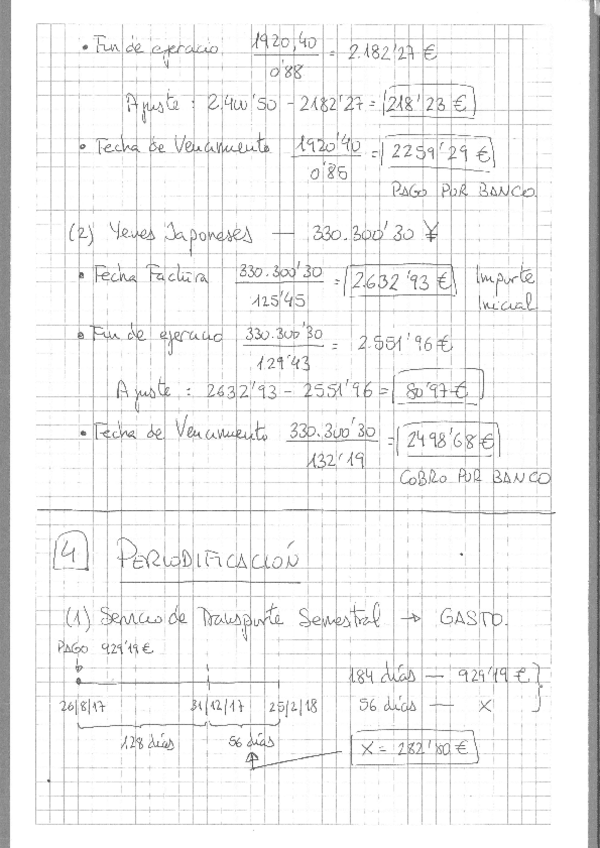 • Fin de ejercicio 1920,40 / 0'88 = 2.182'27 €
Ajuste: 2.400'50 - 2182'27 = 218'23 €
• Fecha de Vencimiento 1920'40 / 0'85 = 2259'29 €
PAGO POR BANCO
(2) Yenes Japoneses — 330.300'30 ¥
• Fecha Factura 330.300'30 / 125'45 = 2.632'93 € Importe Inicial
• Fin de ejercicio 330.300'30 / 129'43 = 2.551'96 €
Ajuste: 2632'93 - 2551'96 = 80'97 €
• Fecha de Vencimiento 330.300'30 / 132'19 = 2498'68 €
COBRO POR BANCO
4 PERIODIFICACIÓN
(1) Servicio de Transporte Semestral → GASTO.
PAGO 929'19 €
184 días — 929'19 €
26/8/17 31/12/17 25/2/18 56 días — X
128 días 56 días X = 282'80 €